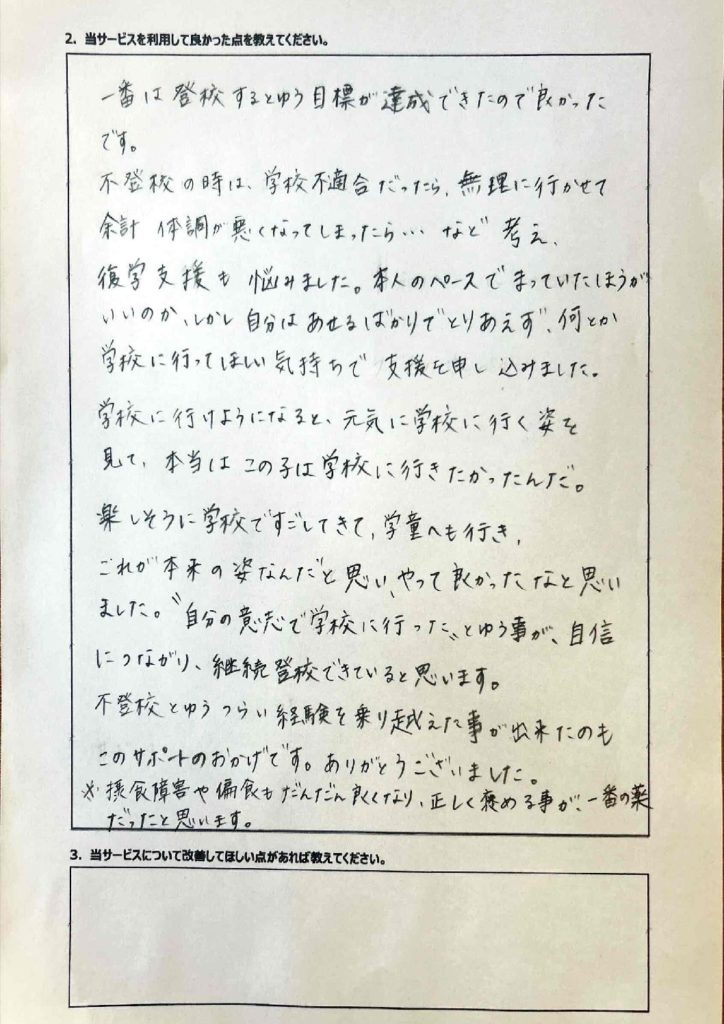 2. 当サービスを利用して良かった点を教えてください。
一番は登校するとゆう目標が達成できたので良かった
です。
不登校の時は、学校不適合だったら、無理に行かせて
余計 体調が悪くなってしまったら… など 考え、
復学支援も 悩みました。本人のペースでまっていたほうが
いいのか、しかし自分はあせるばかりでとりあえず、何とか
学校に行ってほしい気持ちで 支援を申し込みました。
学校に行けようになると、元気に学校に行く姿を
見て、本当はこの子は学校に行きたかったんだ。
楽しそうに学校ですごしてきて、学童へも行き、
これが本来の姿なんだと思い、やって良かったなと思い
ました。〝自分の意志で学校に行った〟とゆう事が、自信
につながり、継続登校できていると思います。
不登校とゆうつらい経験を乗り越えた事が出来たのも
このサポートのおかげです。ありがとうございました。
※摂食障害や偏食もだんだん良くなり、正しく褒める事が、一番の薬
だったと思います。
3. 当サービスについて改善してほしい点があれば教えてください。